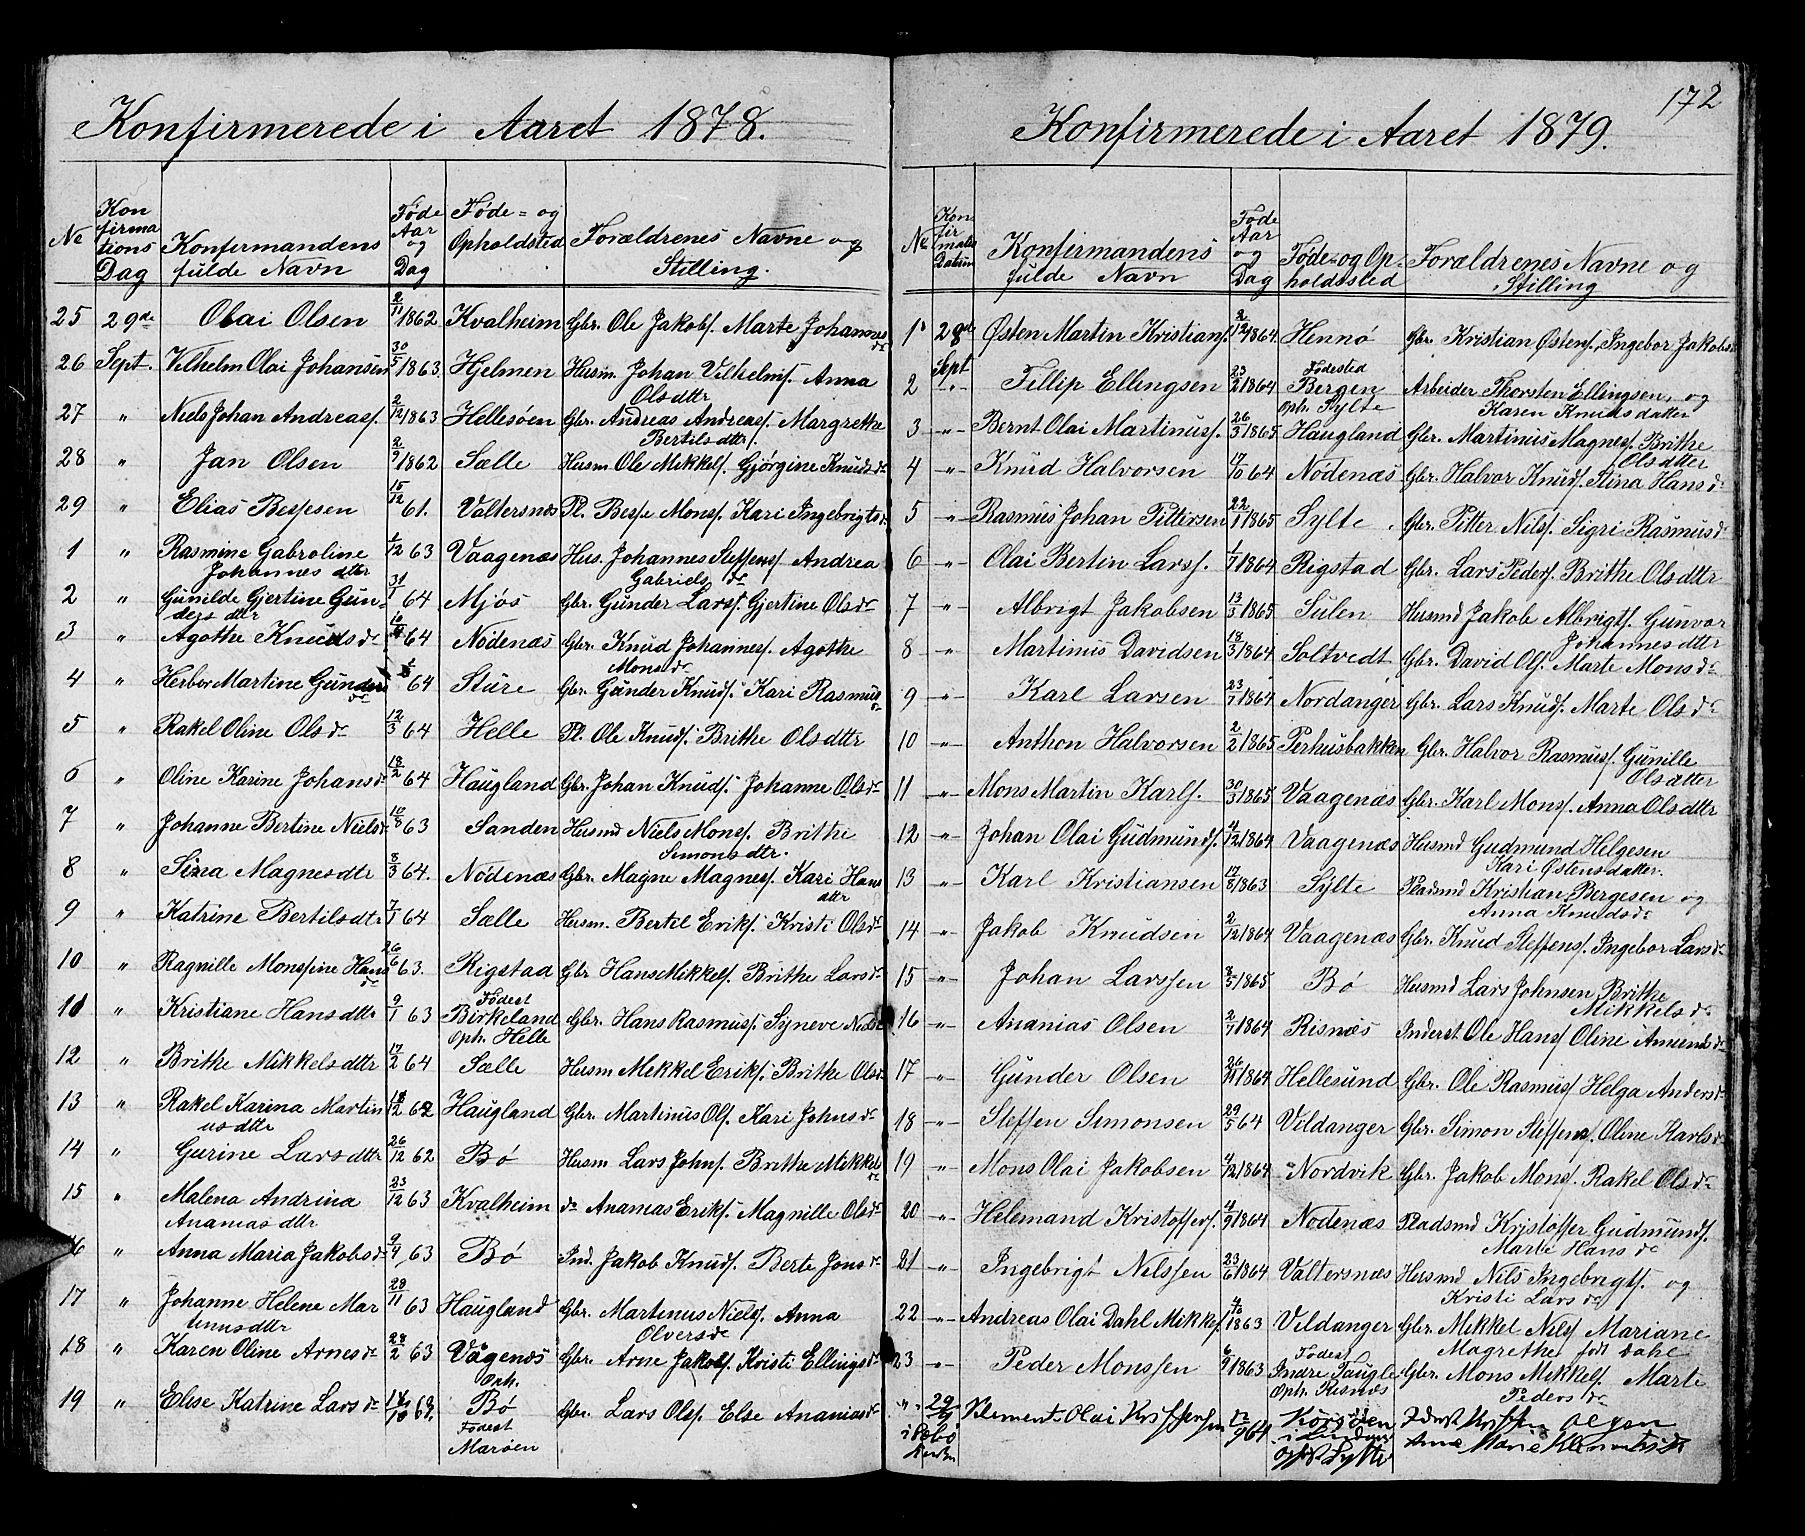 172
Konfirmerede i Aaret 1878.
No
Kon
firma
tions
Dag
Konfirmandens
fulde Navn
Føde
Aar
og
Dag
Føde= og
Opholdsted
Forældrenes Navne og
Stilling.
25 29de Olai Olsen 2/11 1862 Kvalheim Gbr. Ole Jakobs. Marte Johannes
dr
26 Sept. Vilhelm Olai Johansen 30/5 1863. Hjelmen Husm. Johan Vilhelms. Anna
Olsdttr
27 " Niels Johan Andreass. 2/12 1863 Hellesøen Gbr. Andreas Andreass. Margrethe
Bertilsdttr.
28 " Jan Olsen 2/9 1862 Sælle Husm Ole Mikkels. Gjørgine Knudsdr
29 " Elias Bessesen 15/12 61. Valtersnæs Pl. Besse Mons. Kari Ingebrigtsdr
1 " Rasmine Gabroline 1/12 63 Vaagenæs Hus. Johannes Steffens. Andrea
Johannesdttr Gabrielsdr
2 " Gunilde Gjertine Gun- 31/1 64 Mjøs Gbr. Gunder Lars. Gjertine Olsdr
dersdttr
3 " Agothe Knudsdr 64 Nødenæs Gbr. Knud Johannes. Agothe
Monsdr
4 " Herbor Martine Gunders 64 Sture Gbr. Gunder Knuds. Kari Rasmus
dr dr
5 " Rakel Oline Olsdr 12/3 64 Helle Pl. Ole Knuds. Brithe Olsdttr
6 " Oline Karine Johansdr 18/2 64 Haugland Gbr. Johan Knuds. Johanne Olsdr
7 " Johanne Bertine Nielsdr 10/8 63 Sanden Husmd Niels Mons. Brithe
Simonsdtr.
8 " Sina Magnesdttr 8/3 64. Nødenæs Gbr. Magne Magnes. Kari Hans
dttr
9 " Katrine Bertilsdttr 7/1 64 Sælle Husm. Bertil Eriks. Kristi Olsdr
10 " Ragnille Monssine Hans 26/6 63. Rigstad Gbr Hans Mikkels. Brithe Larsdr
dr
11 " Kristiane Hansdttr 9/1 63 Fødest
Birkeland Gbr. Hans Rasmus. Syneve Nilsdr
Oph. Helle
12 " Brithe Mikkelsdttr 17/2 64 Sælle Husm Mekkel Eriks. Brithe Olsdr
13 " Rakel Karina Martin 18/2 62 Haugland Gbr. Martinus Ols. Kari Johnsdr
usdttr
14 " Gurine Larsdttr 26/12 62 Bø Husm Lars Johns. Brithe Mikkels
dr
15 " Malena Andrina 23/12 63 Kvalheim do Ananias Eriks. Magnille Olsdr
Ananiasdttr
16 " Anna Maria Jakobsdr 9/4 63 Bø Ind. Jakob Knuds. Berte Jonsdr
17 " Johanne Helene Mar 28/11 63 Haugland Gbr. Martenus Niels. Anna
tinusdttr Olversdr
18 " Karen Oline Arnesdr 28/2 63 Vågenæs Gbr. Arne Jakobs. Kristi Ellingsdr
19 " Elise Katrine Larsdr Oph.
Bø Gbr. Lars Ols. Else Ananiasdr
Fødest
Marøen
Konfirmerede i Aaret 1879.
No
Kon
fir
mations
Datum
Konfirmandens
fulde Navn
Føde
Aar
og
Dag
Føde= og Op-
holdssted
Forældrenes Navne og
Stilling
1 28de Østen Martin Kristians. 2/12 1864. Hennø Gbr. Kristian Østens. Ingebor Jakobsdr
2 Sept Fillip Ellingsen 23/2 1864 Fødested
Bergen Arbeider Thorsten Ellingsen, og
Oph. Sylte Karen Knudsdatter
3 -"- Bernt Olai Martinus. 26/3 1865 Haugland Gbr. Martinus Magnes. Brithe
Olsdtter
4 -"- Knud Halvorsen 17/10 64 Nødenæs Gbr. Halvor Knuds. Stina Hansdr
5 -"- Rasmus Johan Pittersen 22/1 1865 Sylte Gbr. Pitter Nils. Sigri Rasmusdr
6 -"- Olai Bertin Lars. 1/7 1864 Rigstad Gbr. Lars Peders. Brithe Olsdttr
7 -"- Albrigt Jakobsen 13/3 1865 Sulen Husmd Jakob Albrigts. Gunvor
Johannesdttr
8 -"- Martinus Davidsen 18/3 1864 Soltvedt Gbr. David Ols. Marte Monsdr
9 -"- Karl Larsen 23/7 1864 Nordanger Gbr. Lars Knuds. Marte Olsdr
10 -"- Anthon Halvorsen 2/2 1865 Perhusbakken Gbr. Halvor Rasmus. Gunille
Olsdtter
11 -"- Mons Martin Karls. 30/3 1865 Vaagenæs Gbr. Karl Mons. Anna Olsdttr
12 -"- Johan Olai Gudmunds. 4/12 1864 Vaagenæs Husmd Gudmund Helgesen
Kari Østensdatter.
13 -"- Karl Kristiansen 12/8 1863 Sylte Pladsmd Kristian Bergesen og
Anna Knudsdr
14 -"- Jakob Knudsen 2/12 1864 Vaagenæs Gbr. Knud Steffens. Ingebor Larsdr
15 -"- Johan Larssen 8/5 1865 Bø Husmd Lars Johnsen Brithe
Mikkelsdr
16 -"- Ananias Olsen 2/7 1864 Risnæs Inderst Ole Hans. Oline Amundsdr
17 -"- Gunder Olsen 26/11 1864 Hellesund Gbr. Ole Rasmus. Helga Andersdr
18 -"- Steffen Simonsen 29/5 64 Vildanger Gbr. Simon Steffens. Oline Karlsdr
19 -"- Mons Olai Jakobsen 4/12 1864 Nordvik Gbr. Jakob Mons. Rakel Olsdr
20 -"- Helemand Kristoffers. 4/9 1864 Nødenæs Pladsmd Kristoffer Gudmunds.
Marte Hansdr
21 -"- Ingebrigt Nilssen 23/6 1864 Valtersnæs Husmd Nils Ingebrigts. og
Kristi Larsdr
22 -"- Andreas Olai Dahl Mikkels. 4/10 1863 Vildanger Gbr. Mikkel Nils. Mariane
Magrethe født Dahl
23 -"- Peder Monssen 6/9 1863 Fødest
Indre Faugle Gbr. Mons Mikkels. Marte
Oph. Risnæs Pedersdr
" 29/9 Klement Olai Kristoffersen 964 Korsøen Olsen
i Sæbø i Lindaas Ane Marie Klementsdr
Kirken opf. Sylte